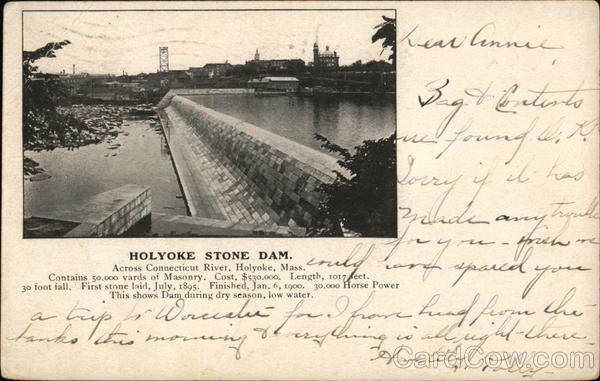 Dear Annie
Bag & Contents
we found O. K.
Sorry if it has
Made any trouble
for you - wish we
could have spared you
HOLYOKE STONE DAM.
Across Connecticut River, Holyoke, Mass.
Contains 50,000 yards of Masonry. Cost, $530,000. Length, 1017 feet.
30 foot fall. First stone laid, July, 1895. Finished, Jan. 6, 1900. 30,000 Horse Power
This shows Dam during dry season, low water.
a trip to Worcester for I have heard from the
banks this morning & everything is all right there -
CardCow.com